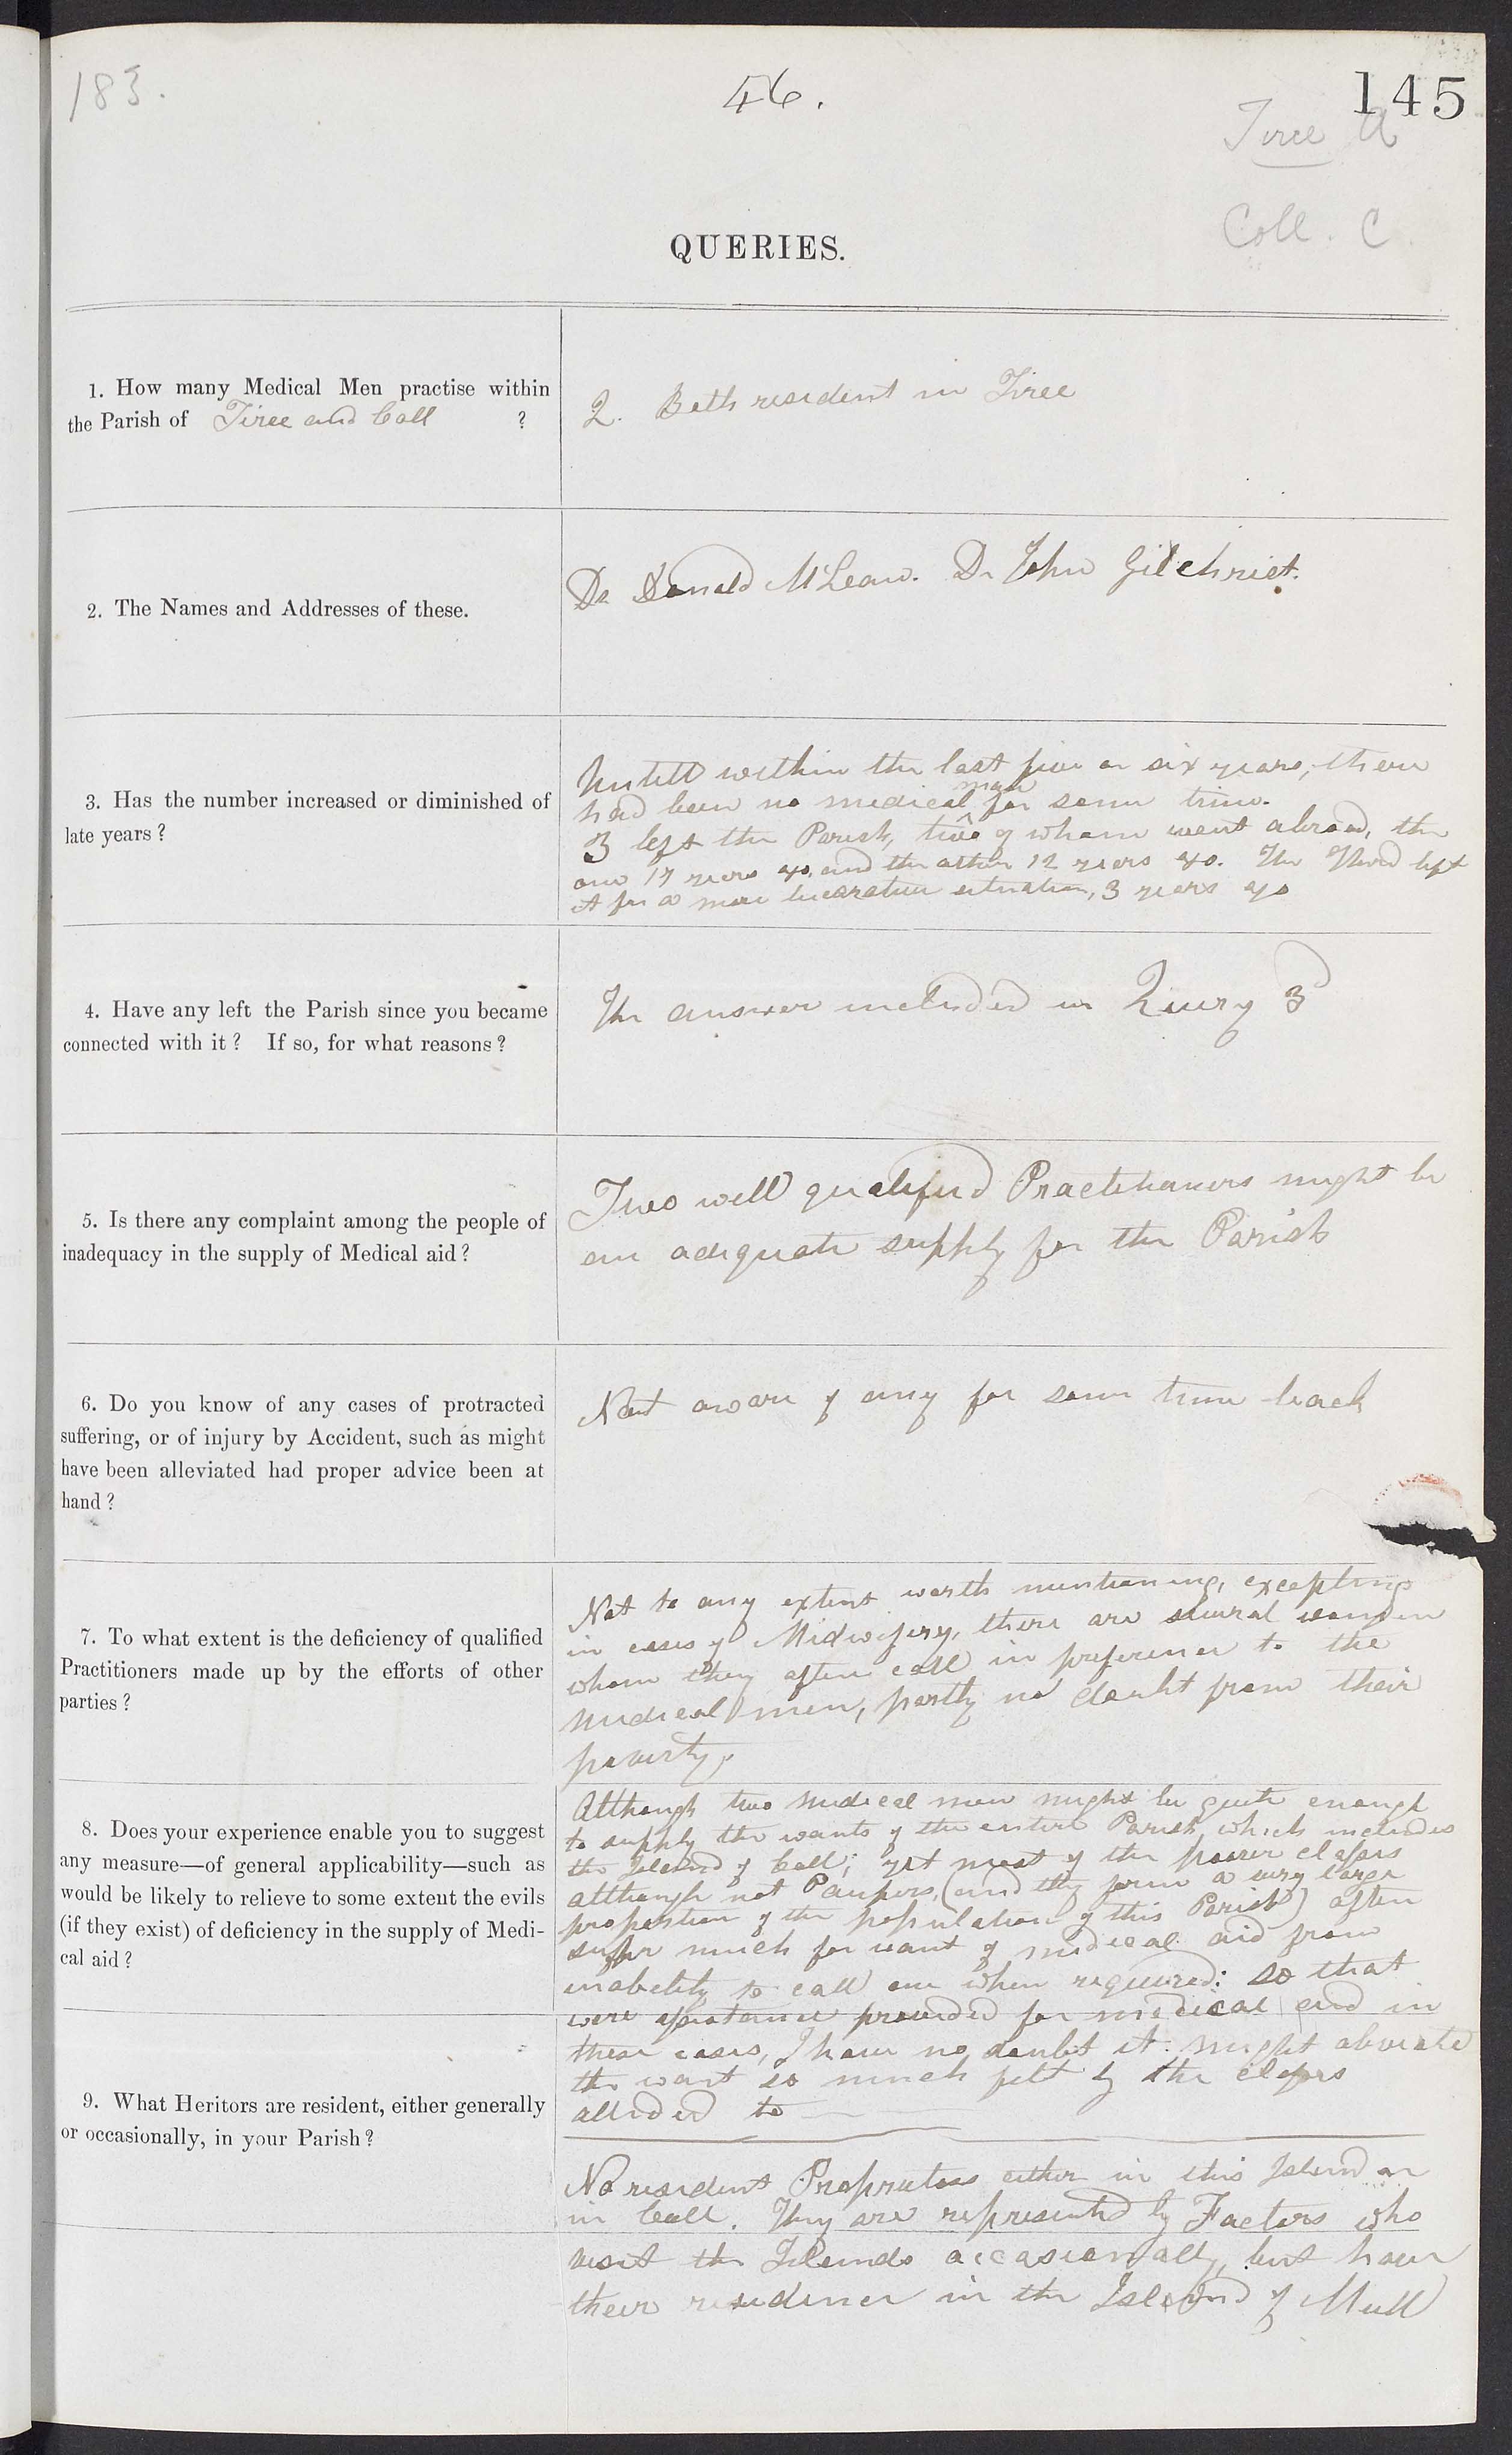 183.
46.
145
Tiree A
Coll. C
QUERIES.
1. How many Medical Men practise within
the Parish of Tiree and Coll ?
2. Both resident in Tiree
2. The Names and Addresses of these.
Dr Donald McLean. Dr John Gilchrist.
3. Has the number increased or diminished of
late years?
Untill within the last five or six years, there
had been no medical man for some time.
3 left the Parish, two of whom went abroad, the
one 17 years ago, and the other 12 years ago. The Third left
it for a more lucarative situation, 3 years ago
4. Have any left the Parish since you became
connected with it? If so, for what reasons?
The answer included in Query 3
5. Is there any complaint among the people of
inadequacy in the supply of Medical aid?
Two well qualified Practitioners might be
an adequate supply for the Parish
6. Do you know of any cases of protracted
suffering, or of injury by Accident, such as might
have been alleviated had proper advice been at
hand?
Not aware of any for some time back
7. To what extent is the deficiency of qualified
Practitioners made up by the efforts of other
parties?
Not to any extent worth mentioning, excepting
in cases of Midwifery, there are several women
whom they often call in preference to the
Medical men, partly no doubt from their
poverty.
8. Does your experience enable you to suggest
any measure—of general applicability—such as
would be likely to relieve to some extent the evils
(if they exist) of deficiency in the supply of Medi-
cal aid?
Although two Medical men might be quite enough
to supply the wants of the entire Parish, which includes
the Island of Coll; yet most of the poorer classes
although not Paupers, (and they form a very large
proportion of the population of this Parish) often
suffer much for want of medical aid from
inability to call one when required: so that
were assistance provided for medical aid in
these cases, I have no doubt it might obviate
the want so much felt by the classes
alluded to
9. What Heritors are resident, either generally
or occasionally, in your Parish?
No resident Proprietors either in this Island or
in Coll. They are represented by Factors who
visit the Islands occasionally, but have
their residence in the Island of Mull